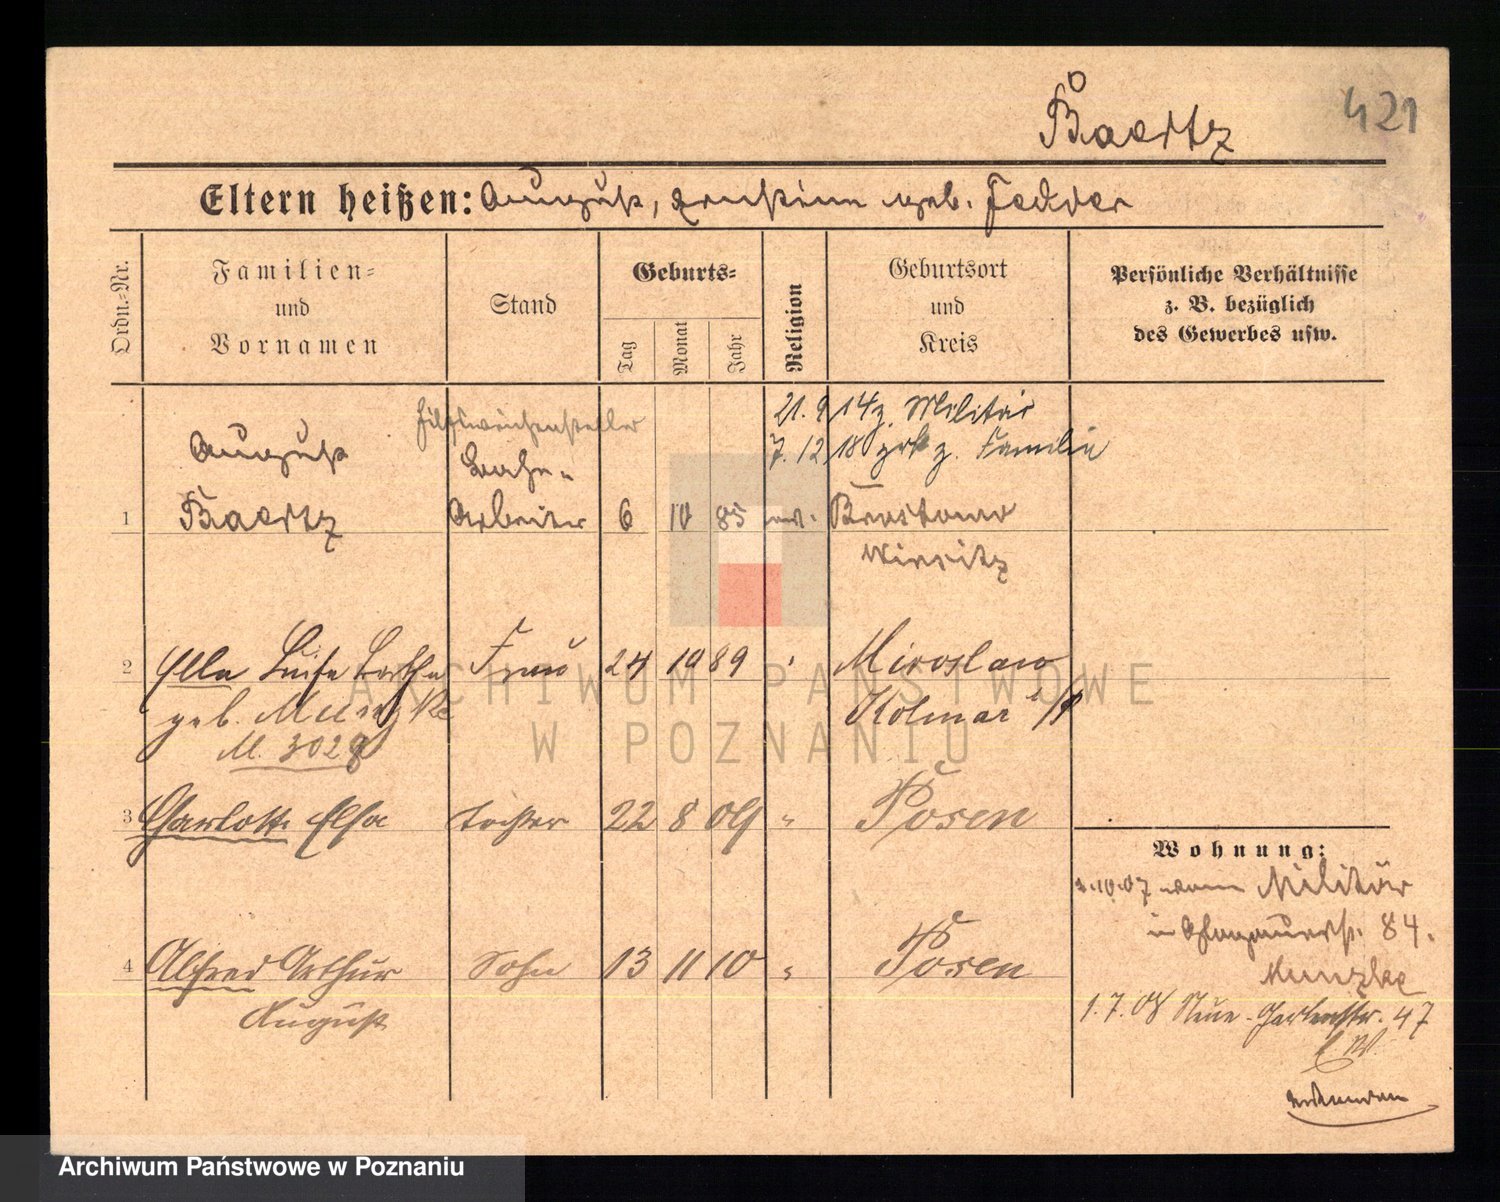 421
Baertz
Eltern heißen: August, Ernstine geb. Fedder
Ordn.-Nr.
Familien-
und
Vornamen
Stand
Geburts-
Tag
Monat
Jahr
Religion
Geburtsort
und
Kreis
Persönliche Verhältnisse
z. B. bezüglich
des Gewerbes usw.
Hilfsweichensteller
21.9.14 z. Militär
7.12.18 zrk z. Familie
August
Bahn-
1 Baertz Arbeiter 6 10 85 ev.
Wirsitz
2 Ella Luise Bertha Frau 24 10 89 " Miroslaw
geb. Kolmar i/P
M. 3028
3 Charlotte Elsa Tochter 22 8 09 " Posen
4 Alfred Arthur Sohn 13 11 10 " Posen
August
Wohnung:
10.07 vom Militär
in 84.
Munzke
1.7.08 Neue-Gartenstr. 47
ARCHIWUM PAŃSTWOWE
W POZNANIU
Archiwum Państwowe w Poznaniu